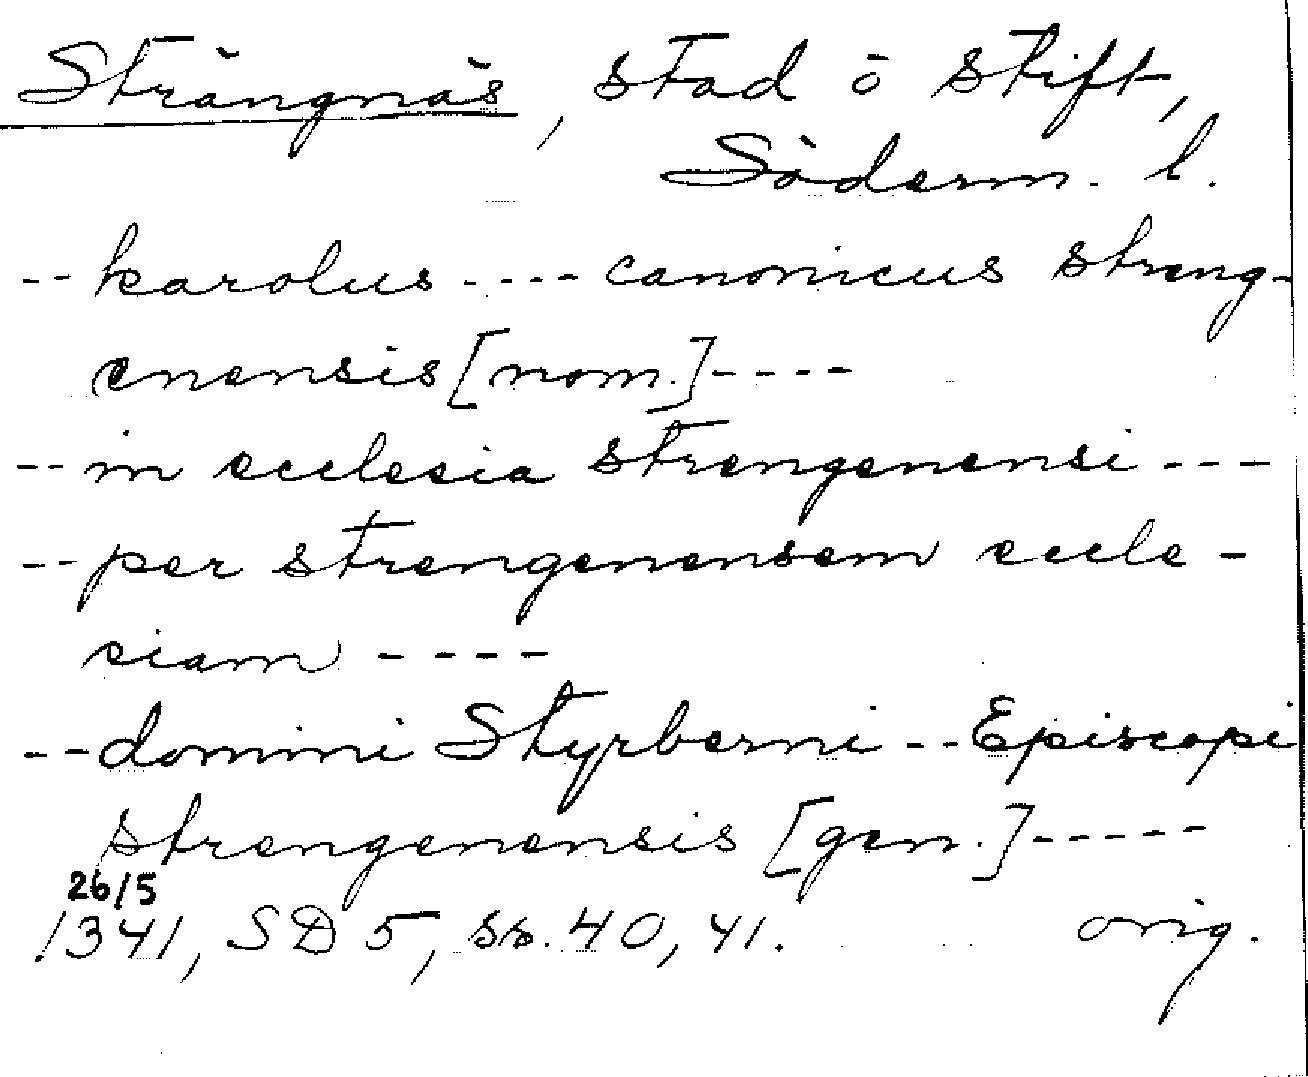 Strängnäs, stad o stift,
Söderm. l.
-- karolus ---- canonicus streng-
enensis [nom.] ----
-- in ecclesia strengenensi ---
-- per strengenensem eccle-
siam ----
-- domini Styrberni -- Episcopi
strengenensis [gen.] -----
26/5
1341, SD 5, ss. 40, 41. orig.